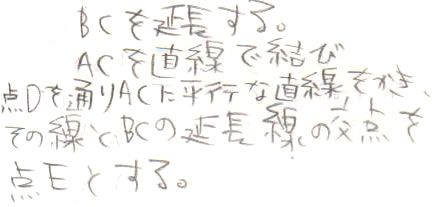 BCを延長する。
ACを直線で結び
点Dを通りACに平行な直線をかき、
その線とBCの延長線の交点を
点Eとする。